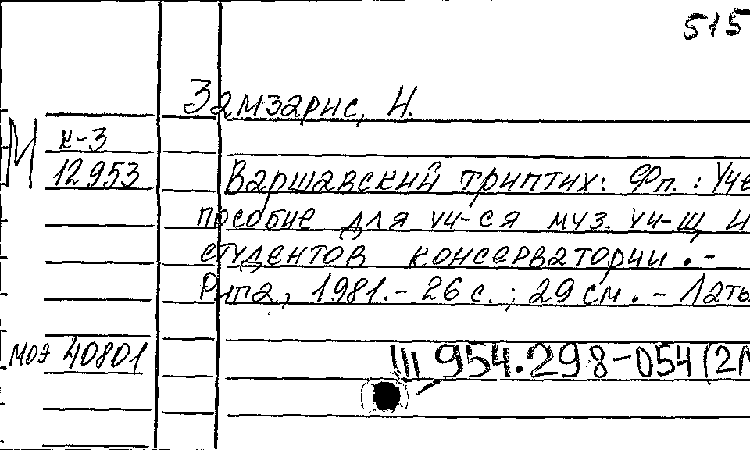 515
Замзарис, И.
М к-3
12953
Варшавский триптих: Фп. : Уче
пособие для уч-ся муз. уч-щ и
студентов консерватории. -
Рига, 1981. - 26 с. ; 29 см. - Латы
моэ 40801
Ш 954.298-054(2Л